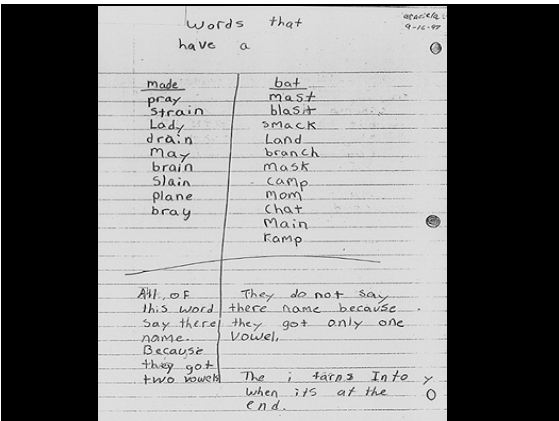 words that
have a
9-16-97
made
pray
strain
Lady
drain
may
brain
slain
plane
bray
bat
mast
blasit
smack
Land
branch
mask
camp
mom
chat
Main
ramp
All of
this word
say there
name.
Because
they got
two vowels
They do not say
there name because
they got only one
vowel.
The i tarns Into y
when its at the
end.